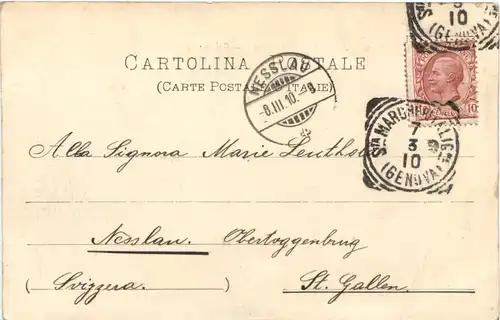 3
10
(GENOVA)
CARTOLINA POSTALE
(CARTE POSTALE D'ITALIE)
NESSLAU
-8.III.10.-9
10
STA MARGHERITA LIGRE
7
3
10
(GENOVA)
Alla Signora Marie Leuthold
Nesslau. Obertoggenburg
(Svizzera. ) St. Gallen.